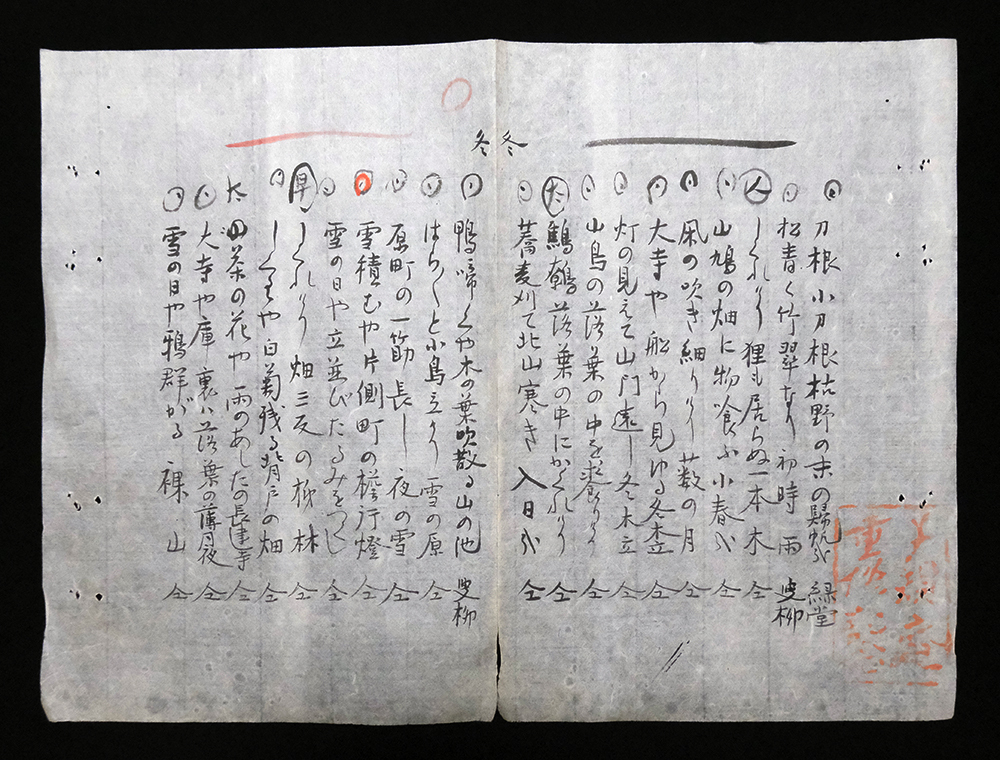 冬
刀根小刀根枯野の末の帰帆哉 緑堂
松青く竹翠なり初時雨 叟柳
人 しぐれけり狸も居らぬ一本木 仝
山鳩の畑に物喰ふ小春哉 仝
凩の吹き細りけり薮の月 仝
大寺や船から見ゆる冬木立 仝
灯の見えて山門遠し冬木立 仝
山鳥の落葉の中を求食りけり 仝
太 鷦鷯落葉の中にかくれけり 仝
蕎麦刈て北山寒き入日哉 仝
冬
鴨啼くや木の葉吹散る山の池 叟柳
はら〳〵と小鳥立けり雪の原 仝
原町の一筋長し夜の雪 仝
雪積むや片側町の軒行燈 仝
雪の日や立並びたるみをつくし 仝
早 しぐれけり畑三反の柳林 仝
しぐるゝや白菊残る背戸の畑 仝
太 茶の花や雨のあしたの長建寺 仝
大寺や庫裏は落葉の薄月夜 仝
雪の日や鴉群がる裸山 仝